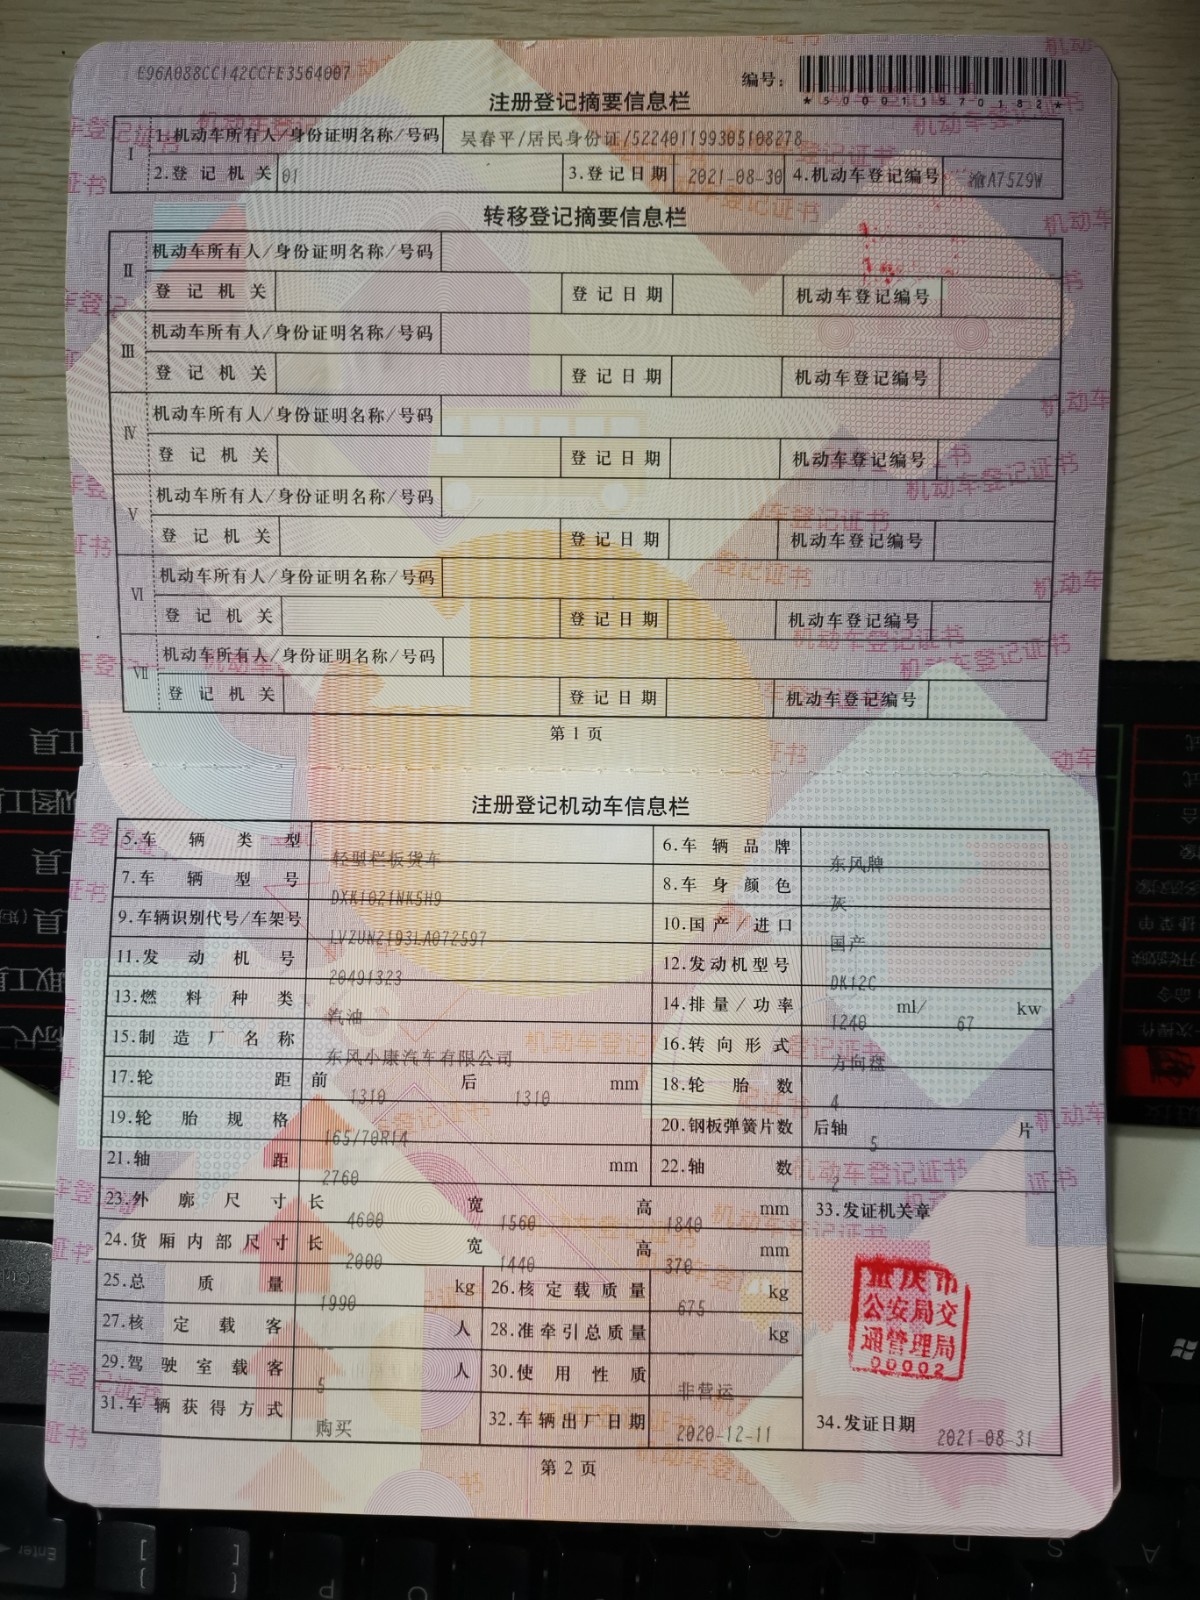 E96A088CC142CCFE3564007
编号：
*500011570182*
注册登记摘要信息栏
I 1.机动车所有人/身份证明名称/号码 吴春平/居民身份证/522401199305108278
2.登记机关 01 3.登记日期 2021-08-30 4.机动车登记编号 渝A75Z9W
转移登记摘要信息栏
II 机动车所有人/身份证明名称/号码
登记机关 登记日期 机动车登记编号
III 机动车所有人/身份证明名称/号码
登记机关 登记日期 机动车登记编号
IV 机动车所有人/身份证明名称/号码
登记机关 登记日期 机动车登记编号
V 机动车所有人/身份证明名称/号码
登记机关 登记日期 机动车登记编号
VI 机动车所有人/身份证明名称/号码
登记机关 登记日期 机动车登记编号
VII 机动车所有人/身份证明名称/号码
登记机关 登记日期 机动车登记编号
第1页
注册登记机动车信息栏
5.车辆类型 轻型栏板货车 6.车辆品牌 东风牌
7.车辆型号 DXK1021NK5H9 8.车身颜色 灰
9.车辆识别代号/车架号 LVZUN2193LA072597 10.国产/进口 国产
11.发动机号 20491323 12.发动机型号 DK12C
13.燃料种类 汽油 14.排量/功率 1240 ml/ 67 kw
15.制造厂名称 东风小康汽车有限公司 16.转向形式 方向盘
17.轮距 前 1310 后 1310 mm 18.轮胎数 4
19.轮胎规格 165/70R14 20.钢板弹簧片数 后轴 5 片
21.轴距 2760 mm 22.轴数 2
23.外廓尺寸 长 4600 宽 1560 高 1840 mm 33.发证机关章
24.货厢内部尺寸 长 2000 宽 1440 高 370 mm
25.总质量 1990 kg 26.核定载质量 675 kg
重庆市
公安局交
通管理局
00002
27.核定载客 人 28.准牵引总质量 kg
29.驾驶室载客 5 人 30.使用性质 非营运
31.车辆获得方式 购买 32.车辆出厂日期 2020-12-11 34.发证日期 2021-08-31
第2页